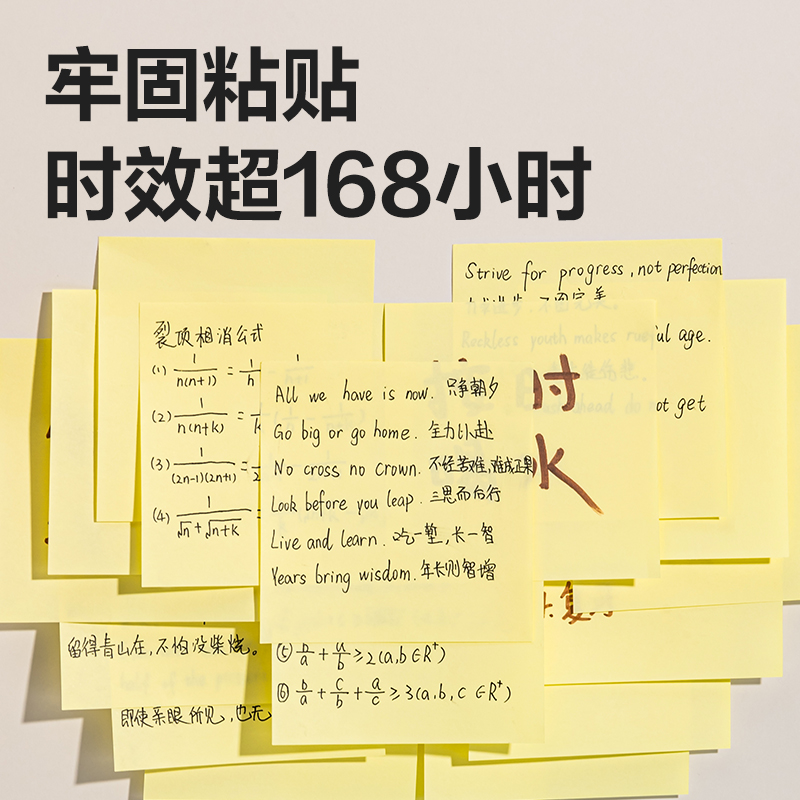 牢固粘贴
时效超168小时
Strive for progress, not perfection
Reckless youth makes rueful age.
not get
裂项相消公式
(1) 1/n(n+1) = 1/n
(2) 1/n(n+k) = 1/k
(3) 1/(2n-1)(2n+1) = 1/2
(4) 1/√n+√n+k =
All we have is now. 只争朝夕
Go big or go home. 全力以赴
No cross no crown. 不经苦难,难成正果
Look before you leap. 三思而后行
Live and learn. 吃一堑,长一智
Years bring wisdom. 年长则智增
时
K
复习
留得青山在,不怕没柴烧。
⑤ b/a + a/b ≥ 2 (a,b∈R⁺)
⑥ b/a + c/b + a/c ≥ 3 (a,b,c∈R⁺)
即使亲眼所见,也无